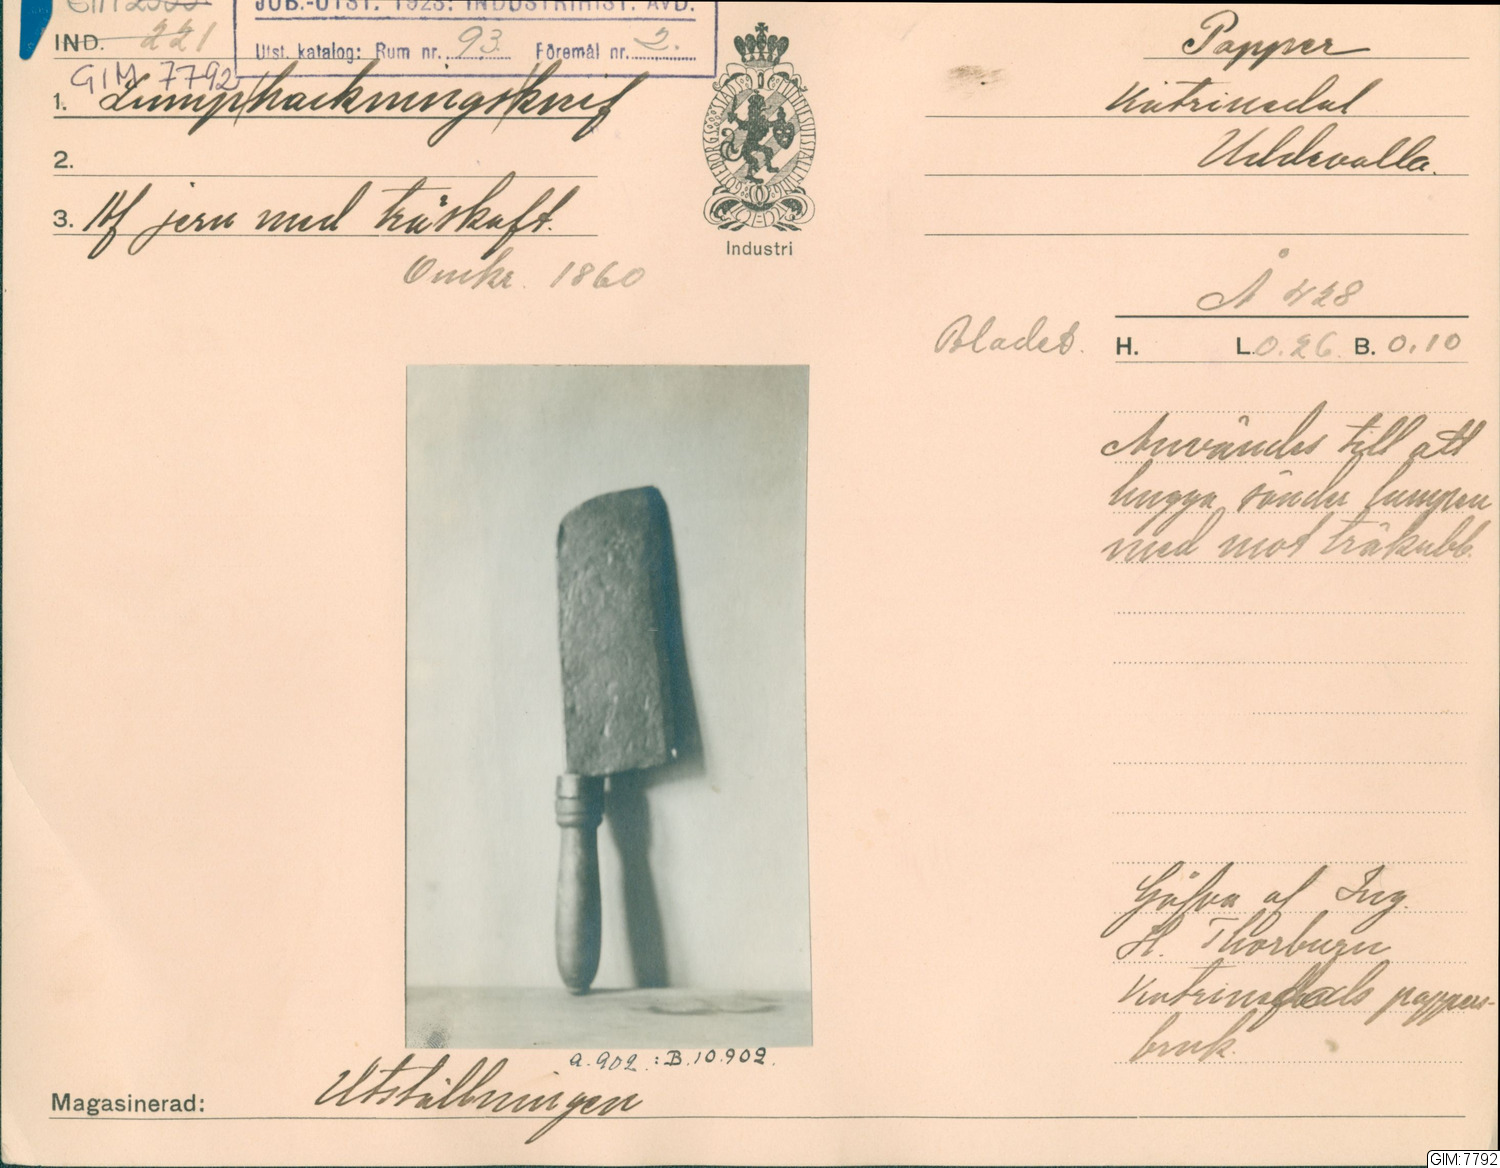 GIM 2535
JUB.-UTST. 1923: INDUSTRIHIST. AVD.
IND. 221
Utst. katalog: Rum nr. 93. Föremål nr. 2.
GIM 7792
1. Lump/hacknings/knif
2.
3. Af jern med träskaft.
Omkr. 1860
GÖTEBORGS STADS
Industri
Papper
Katrinedal
Uddevalla.
Å 428
Bladet. H. L. 0.26 B. 0.10
Användes till att
hugga sönder lumpen
med mot träkubb.
Gåfva af Ing.
H. Thorburn
Katrinedals pappers-
bruk.
a. 902. : B. 10.902.
Magasinerad: Utställningen
GIM:7792